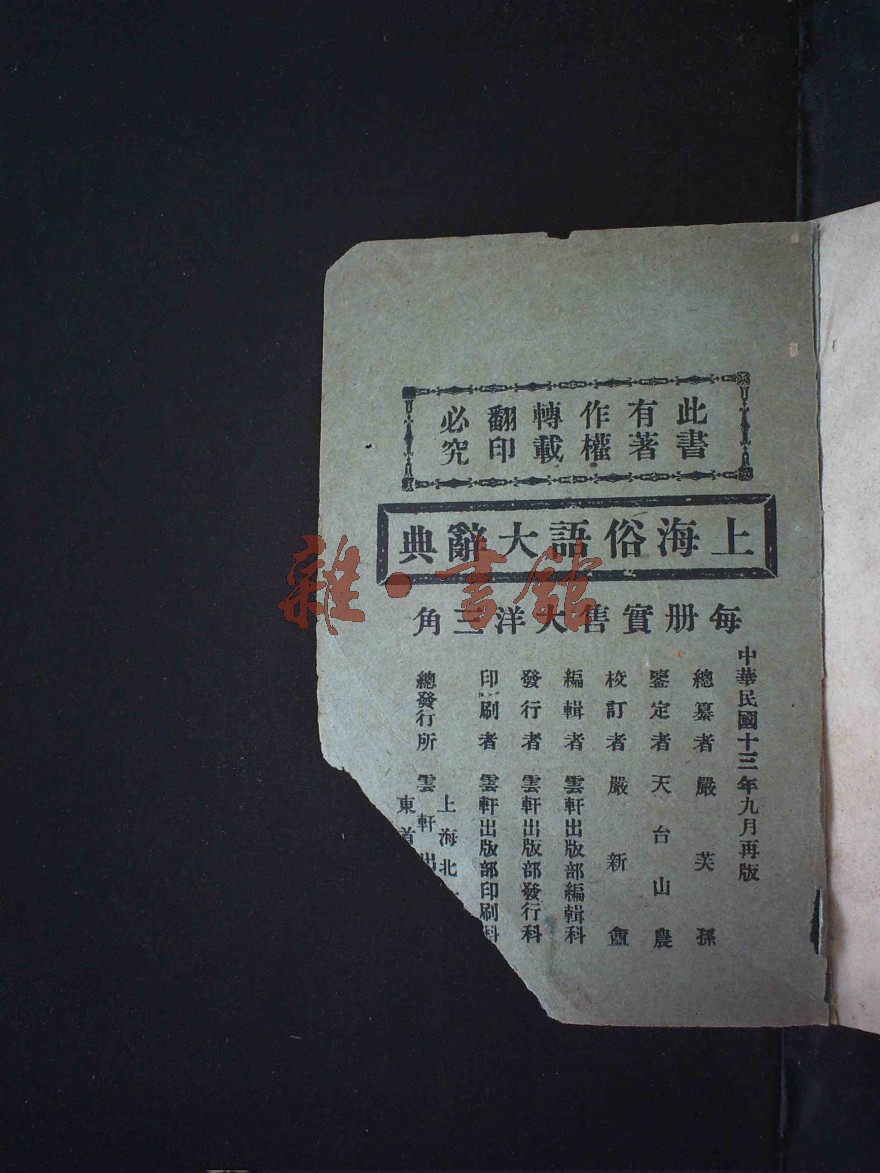 此書
有著
作權
轉載
翻印
必究
上海俗語大辭典
每册實售大洋三角
中華民國十三年九月再版
總纂者 嚴芙孫
鑒定者 天台山農
校訂者 嚴新
編輯者 雲軒出版部編輯科
發行者 雲軒出版部發行科
印刷者 雲軒出版部印刷科
上海北
總發行所 雲軒出
東首
雜·書館